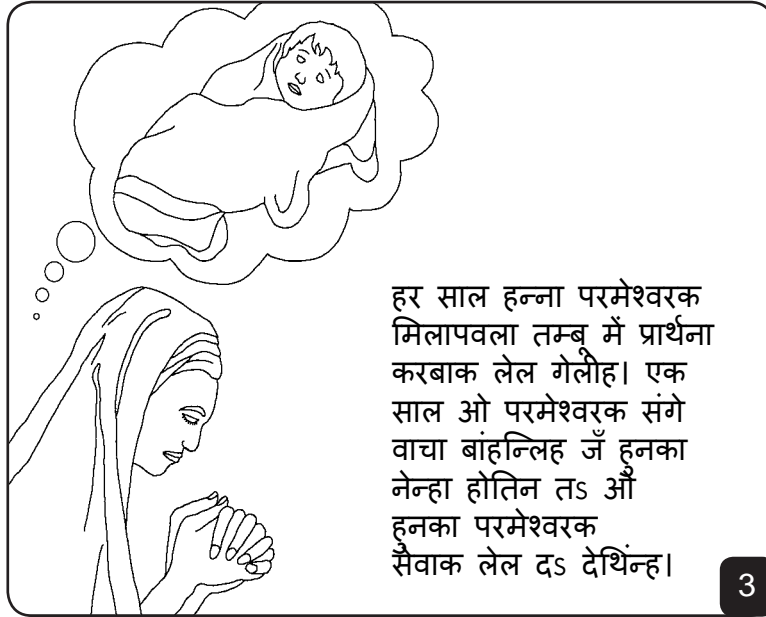 हर साल हन्ना परमेश्वरक
मिलापवला तम्बू में प्रार्थना
करबाक लेल गेलीह। एक
साल ओ परमेश्वरक संगे
वाचा बांहन्लिह जँ हुनका
नेन्हा होतिन तऽ औ
हुनका परमेश्वरक
सेवाक लेल दऽ देथिंन्ह।
3